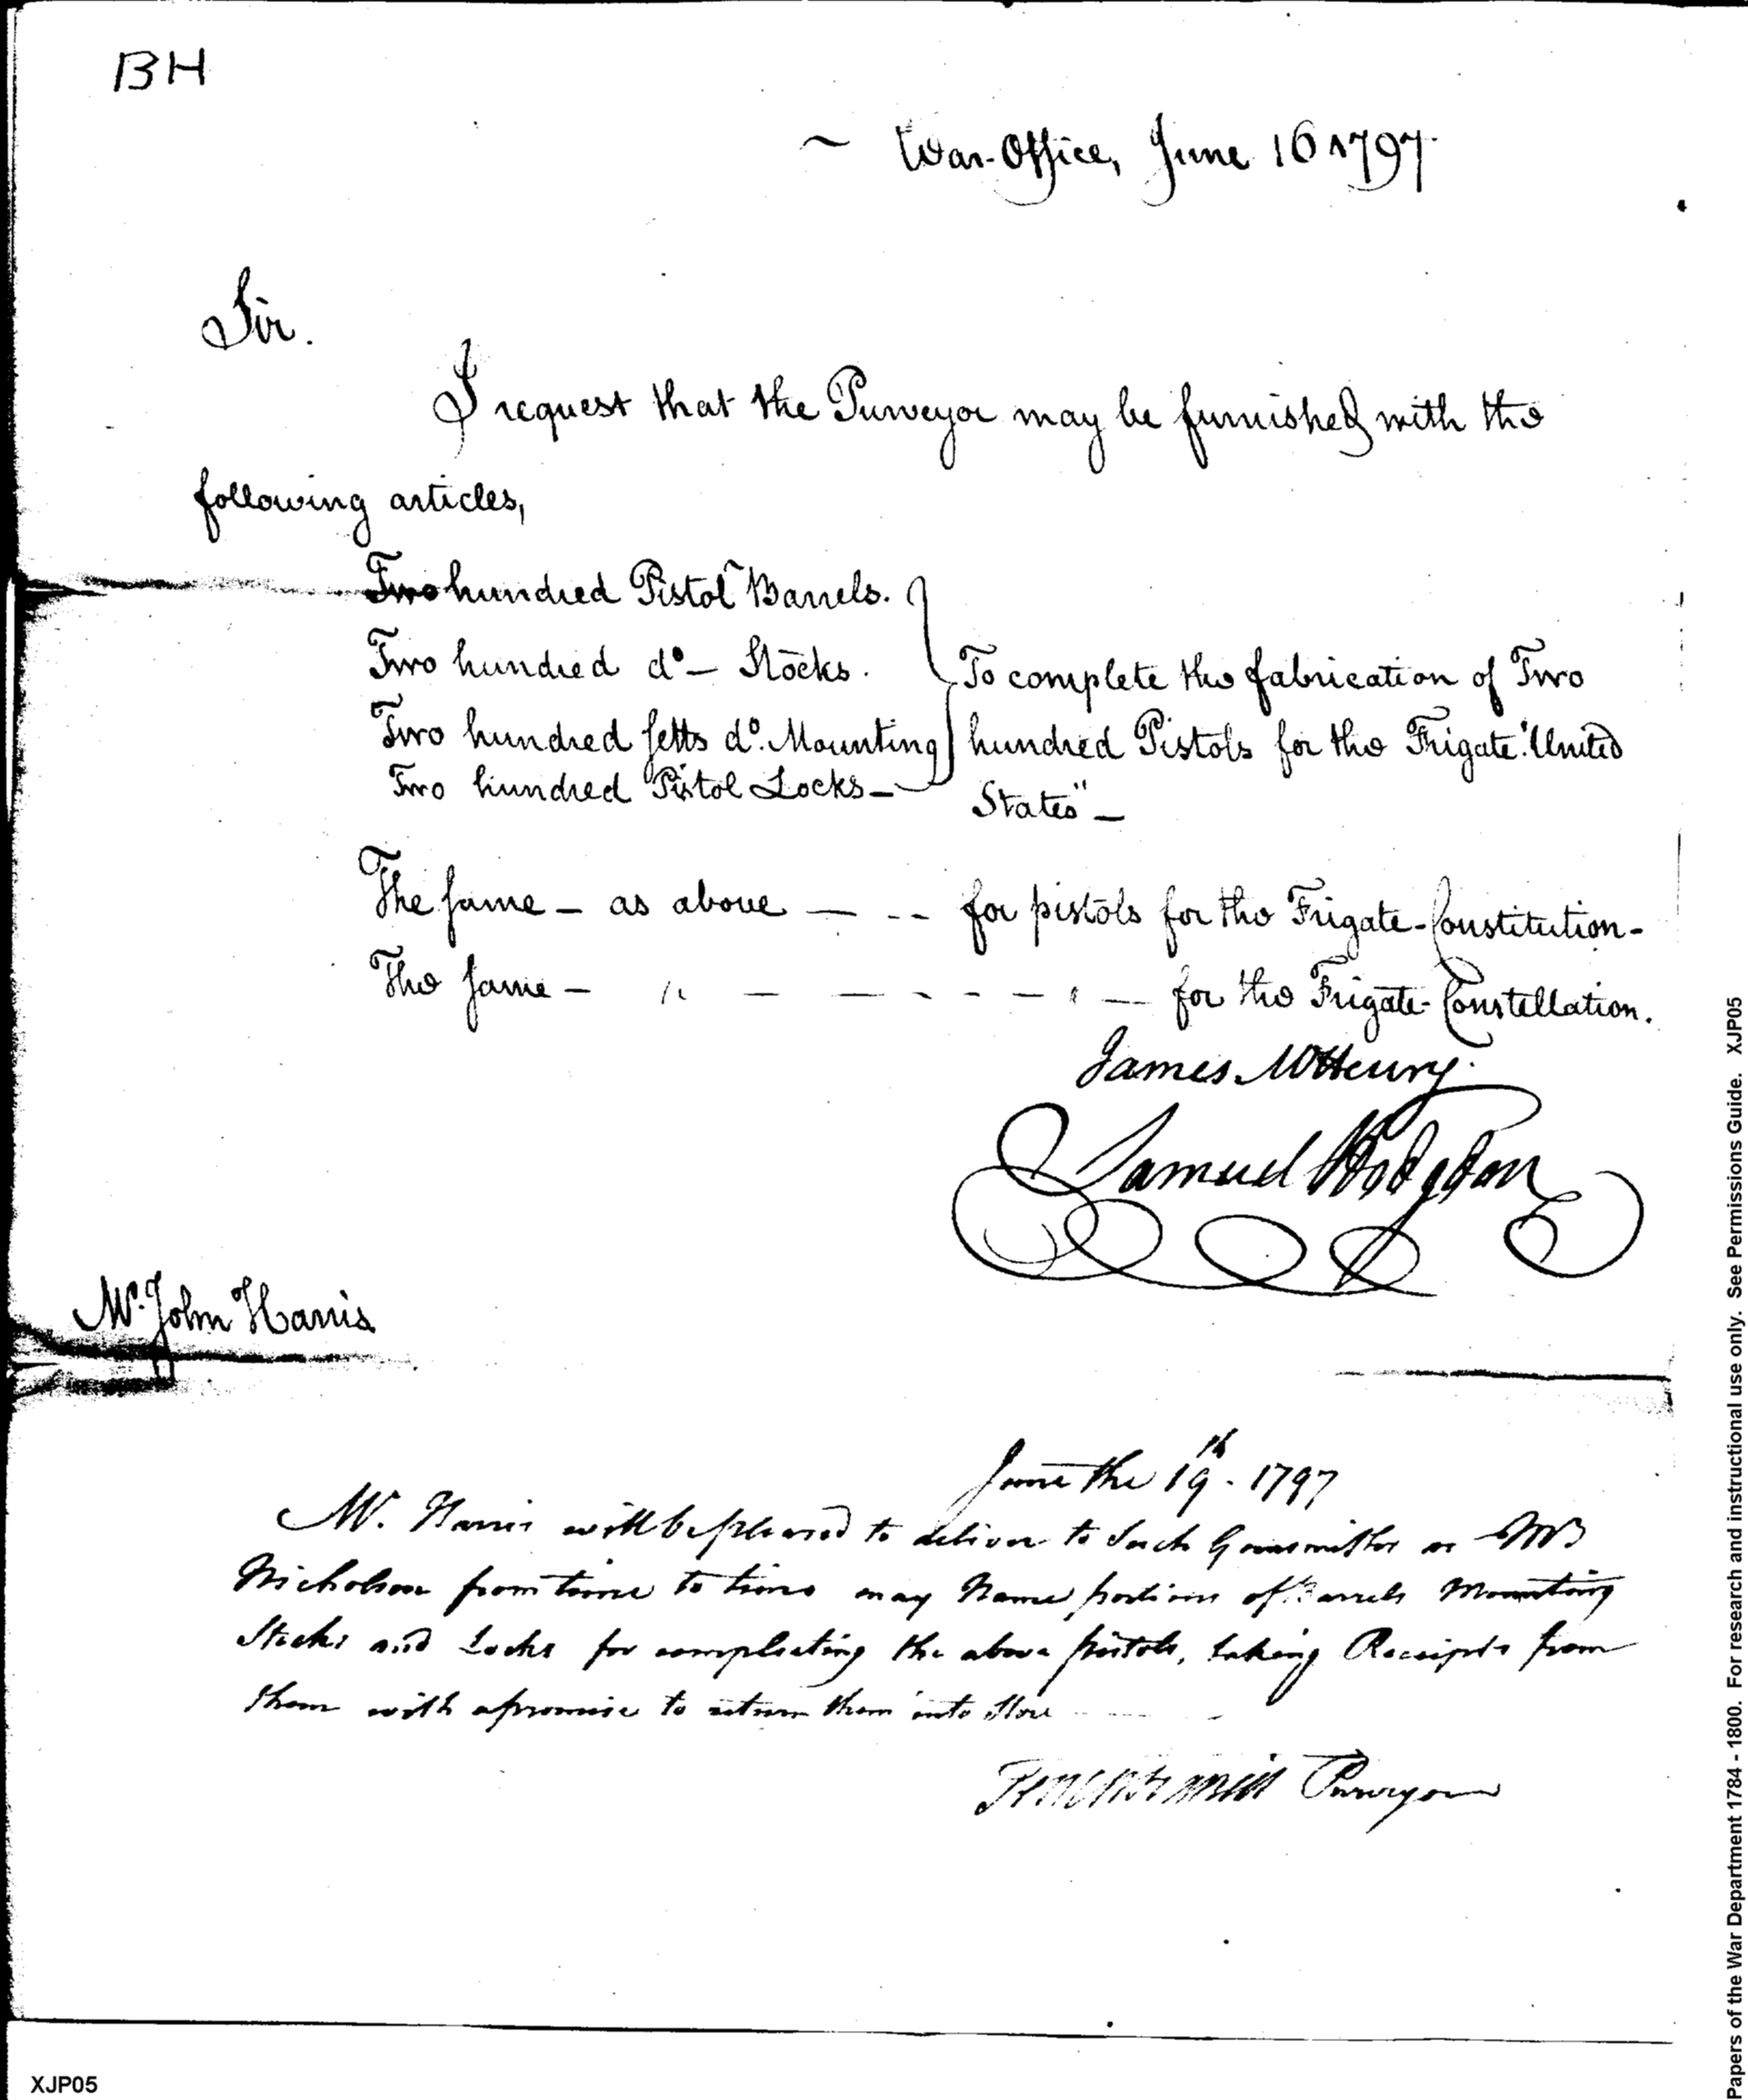 BH
~ War-Office, June 16 1797.
Sir.
I request that the Purveyor may be furnished with the
following articles,
Two hundred Pistol Barrels.
Two hundred do — Stocks.
Two hundred setts do. Mounting
Two hundred Pistol Locks —
To complete the fabrication of Two
hundred Pistols for the Frigate "United
States" —
The same — as above — - - for pistols for the Frigate - Constitution -
The same — " — — - - - — " — for the Frigate - Constellation.
James McHenry.
Samuel Hodgdon
Mr. John Harris
June the 19th. 1797
Mr. Harris will be pleased to deliver to such Gunsmiths as Mr
Nicholson from time to time may Name portions of Barrels Mounting
Stocks and Locks for compleating the above pistols, taking Receipts from
them with a promise to return them into Store
Purveyor
XJP05
Papers of the War Department 1784 - 1800. For research and instructional use only. See Permissions Guide. XJP05